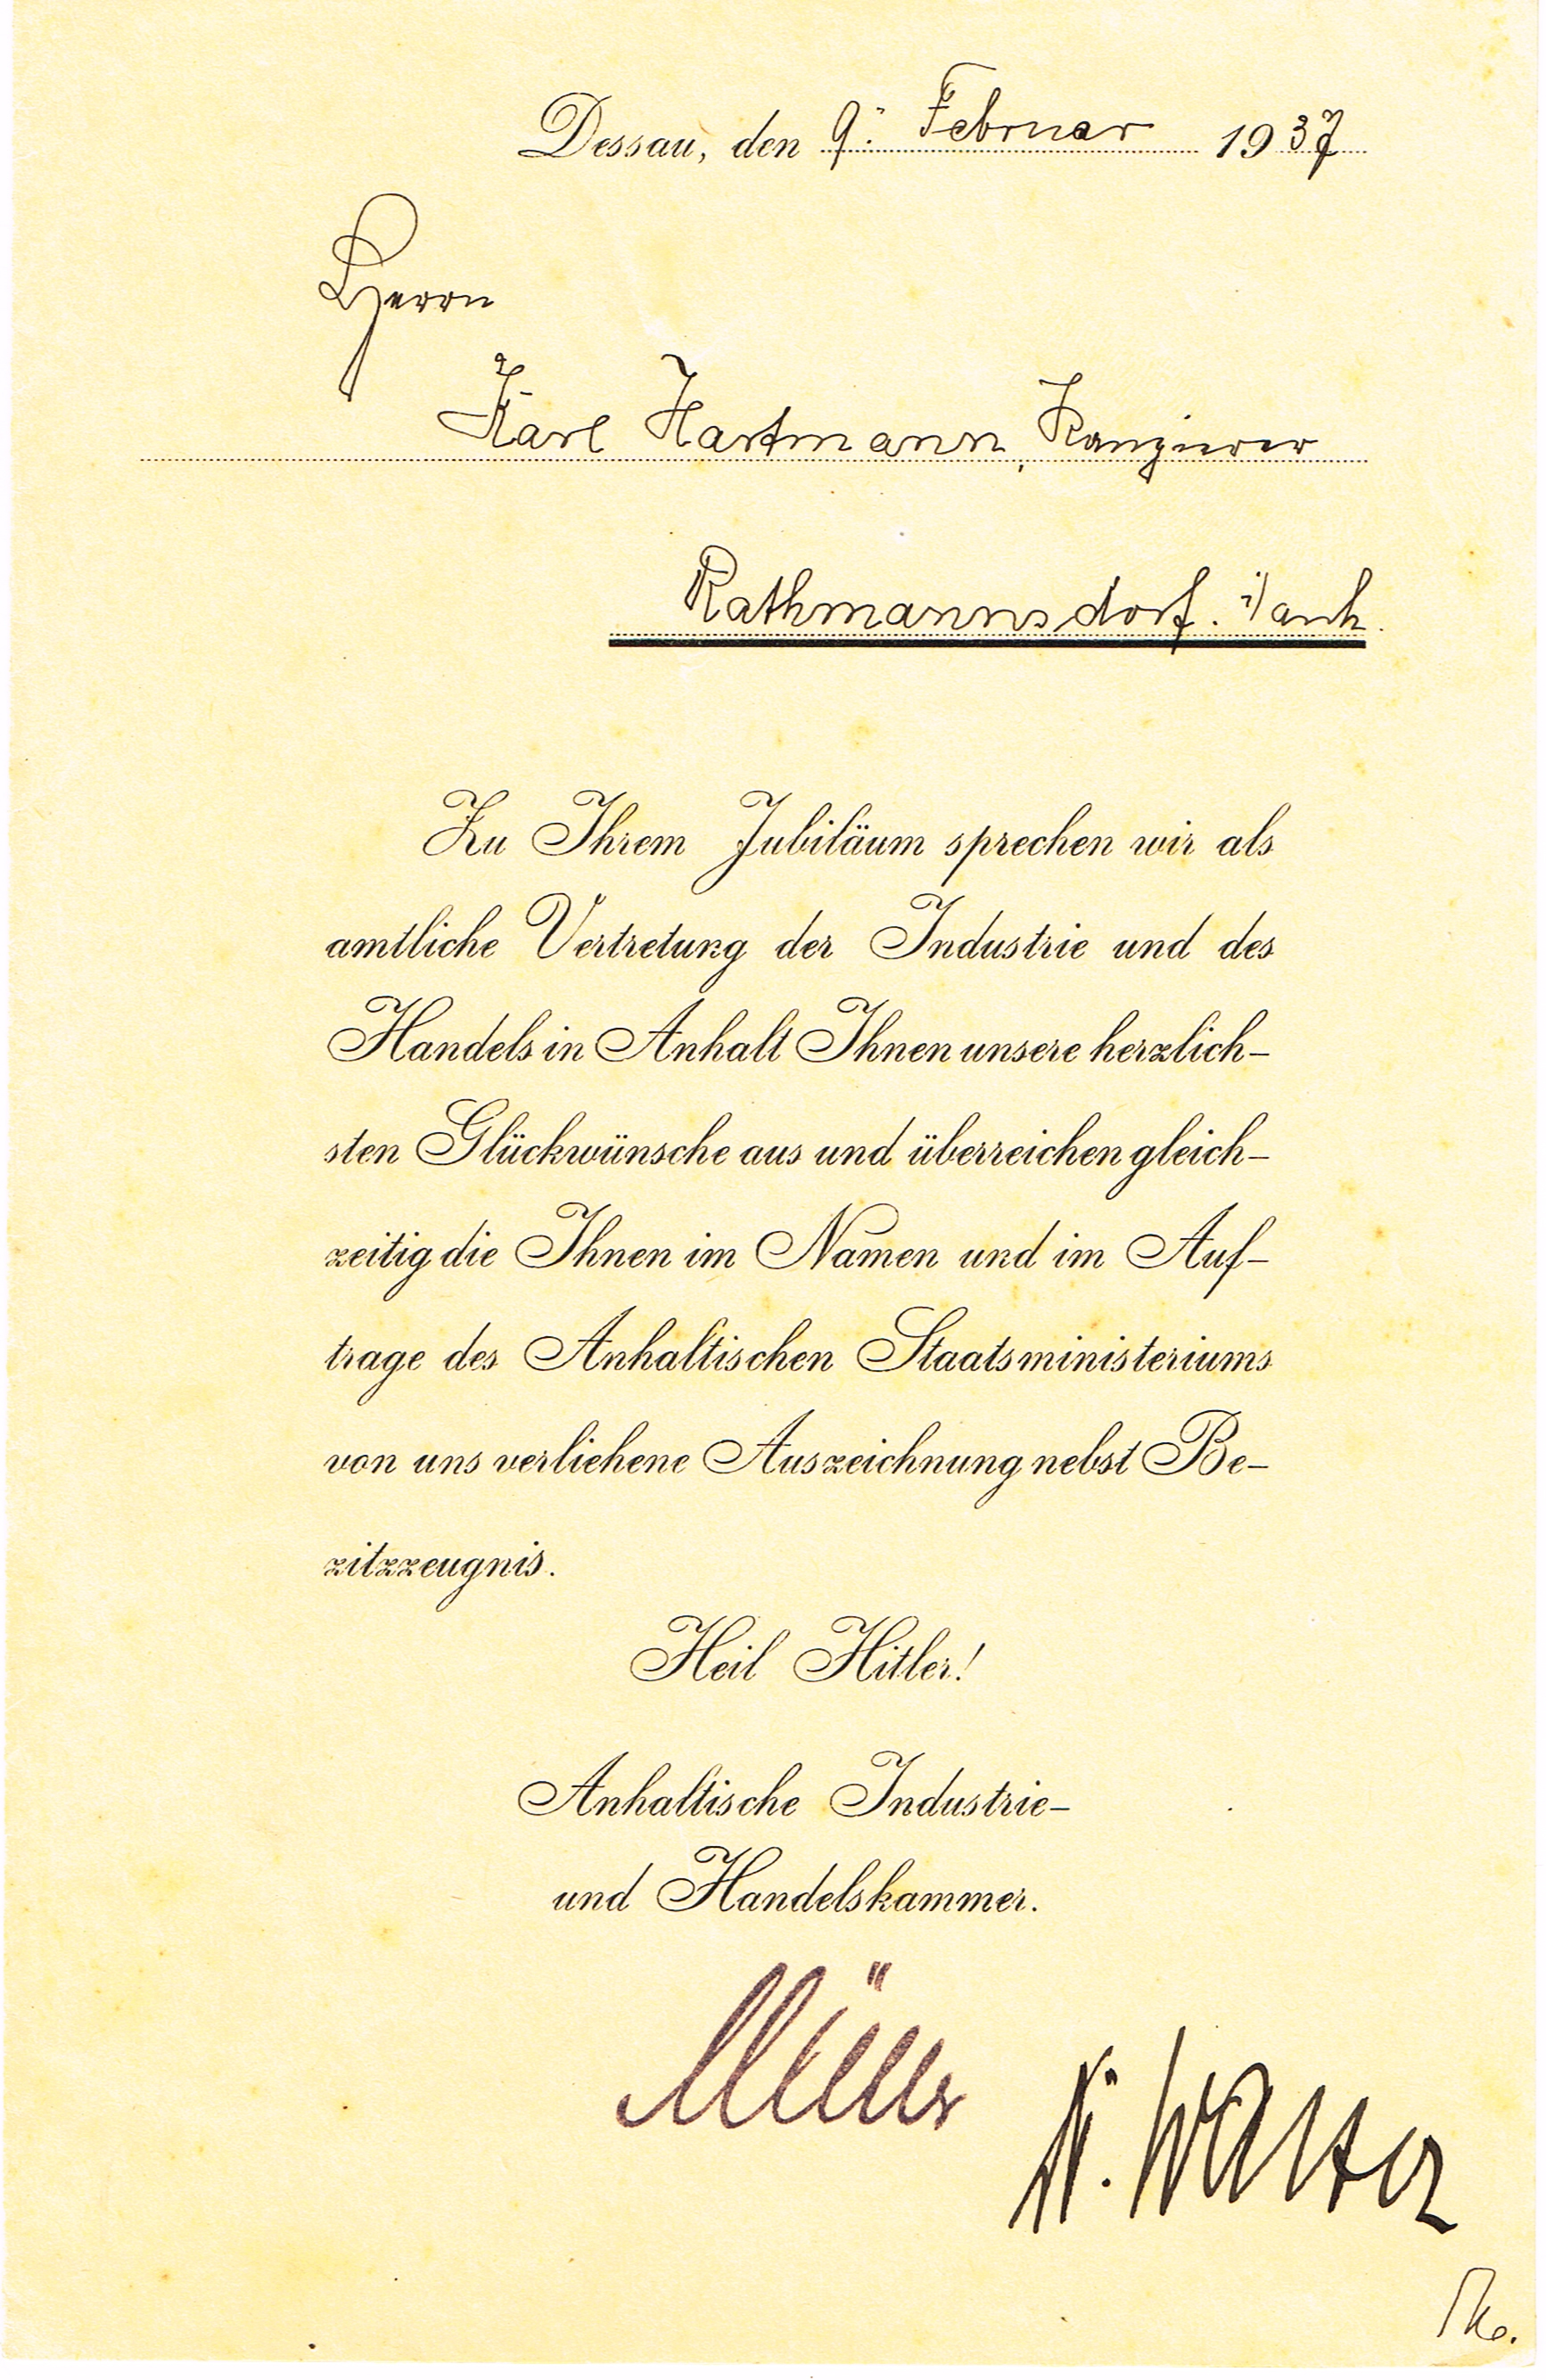 Dessau, den 9. Februar 1937
Herrn
Karl Hartmann, Rangierer
Rathmannsdorf. i/anh.
Zu Ihrem Jubiläum sprechen wir als
amtliche Vertretung der Industrie und des
Handels in Anhalt Ihnen unsere herzlich-
sten Glückwünsche aus und überreichen gleich-
zeitig die Ihnen im Namen und im Auf-
trage des Anhaltischen Staatsministeriums
von uns verliehene Auszeichnung nebst Be-
zitzzeugnis.
Heil Hitler!
Anhaltische Industrie-
und Handelskammer.
Müller